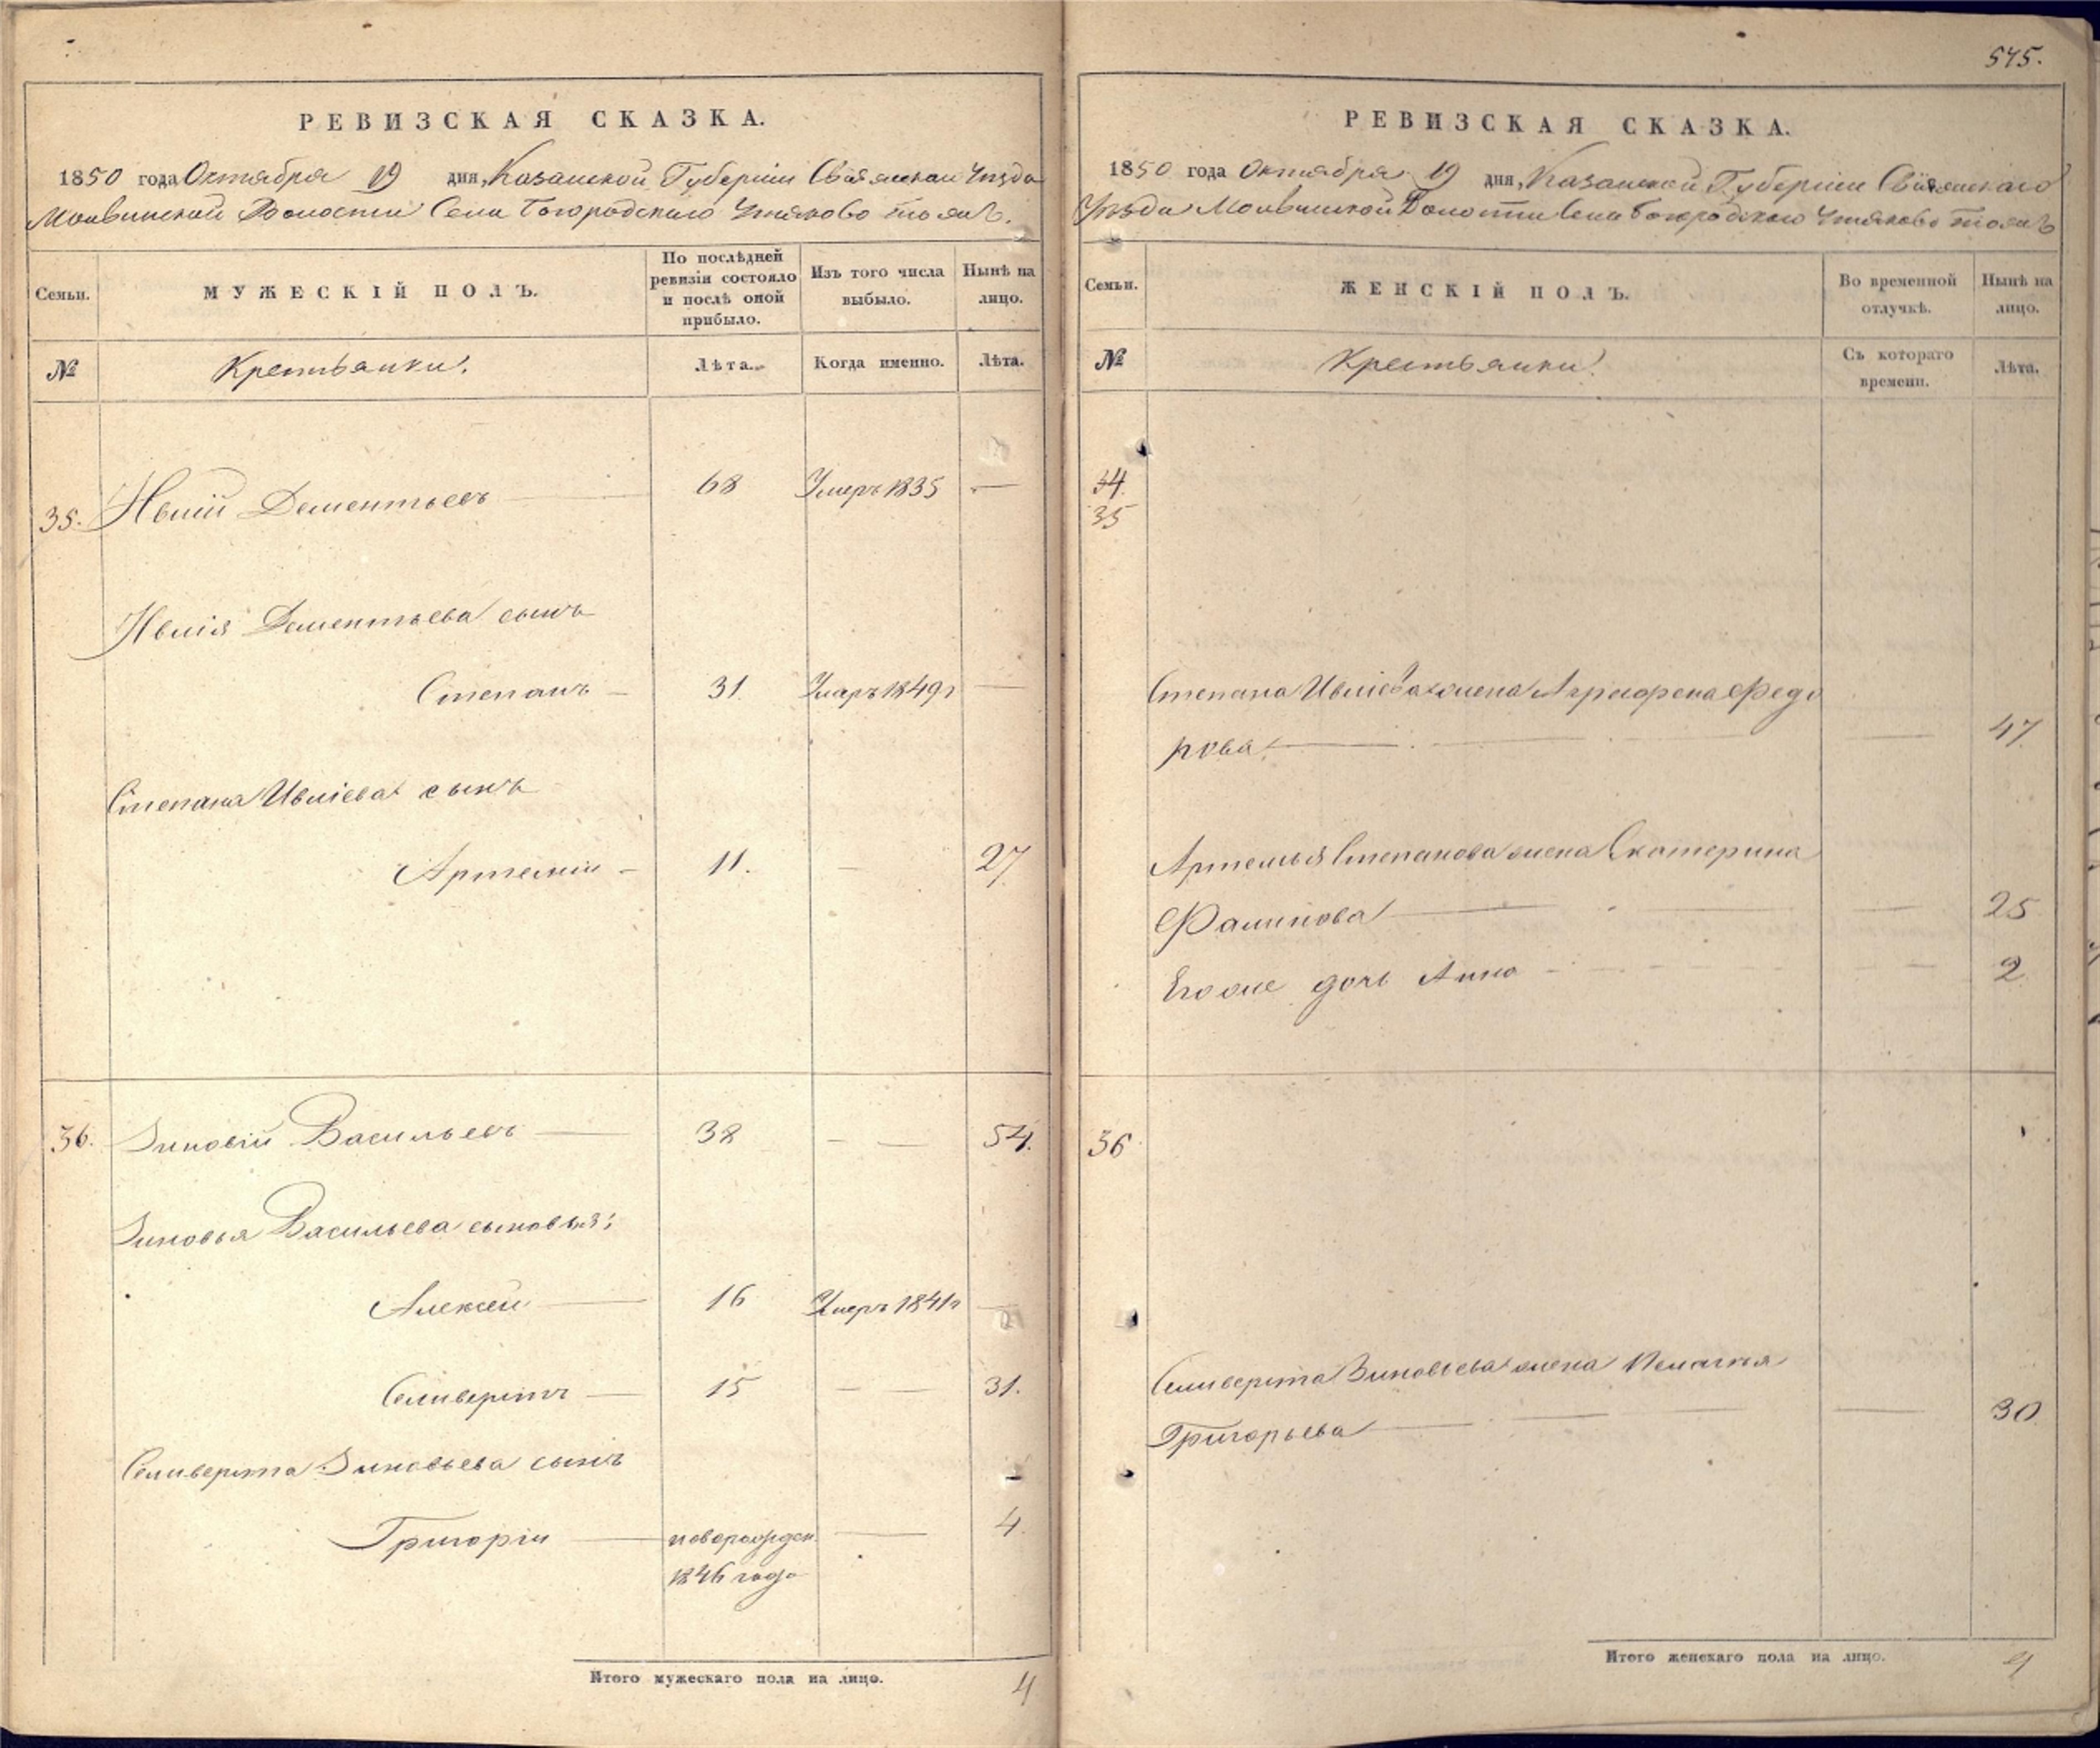 575.
РЕВИЗСКАЯ СКАЗКА.
1850 года Октября 19 дня, Казанской Губерніи Свіяжскаго Уѣзда
Молвинской Волости Села Богородскаго Утяково тожъ.
Семьи.
МУЖЕСКІЙ ПОЛЪ.
По послѣдней ревизіи состояло и послѣ оной прибыло.
Изъ того числа выбыло.
Нынѣ на лицо.
№
Крестьянки.
Лѣта.
Когда именно.
Лѣта.
35. Ивлій Дементьевъ 68 Умеръ 1835 —
Ивлія Дементьева сынъ
Степанъ — 31. Умеръ 1849г —
Степана Ивліева сынъ
Артемій — 11. — 27
36. Зиновій Васильевъ — 38 — — 54.
Зиновья Васильева сыновья:
Алексей — 16 Умеръ 1841г —
Селиверстъ — 15 — — 31.
Селиверста Зиновьева сынъ
Григорій — новорожден. — 4.
1846 года
Итого мужескаго пола на лицо. 4
РЕВИЗСКАЯ СКАЗКА.
1850 года Октября 19 дня, Казанской Губерніи Свіяжскаго
Уѣзда Молвинской Волости Села Богородскаго Утяково тожъ
Семьи.
ЖЕНСКІЙ ПОЛЪ.
Во временной отлучкѣ.
Нынѣ на лицо.
№
Крестьянки.
Съ котораго времени.
Лѣта.
34.
35
Степана Ивліева жена Аграфена Федо
рова — — — 47
Артемья Степанова жена Екатерина
Филипова — — — 25
Его же дочь Анна — — — 2
36
Селиверста Зиновьева жена Пелагея
Григорьева — — — 30
Итого женскаго пола на лицо. 4